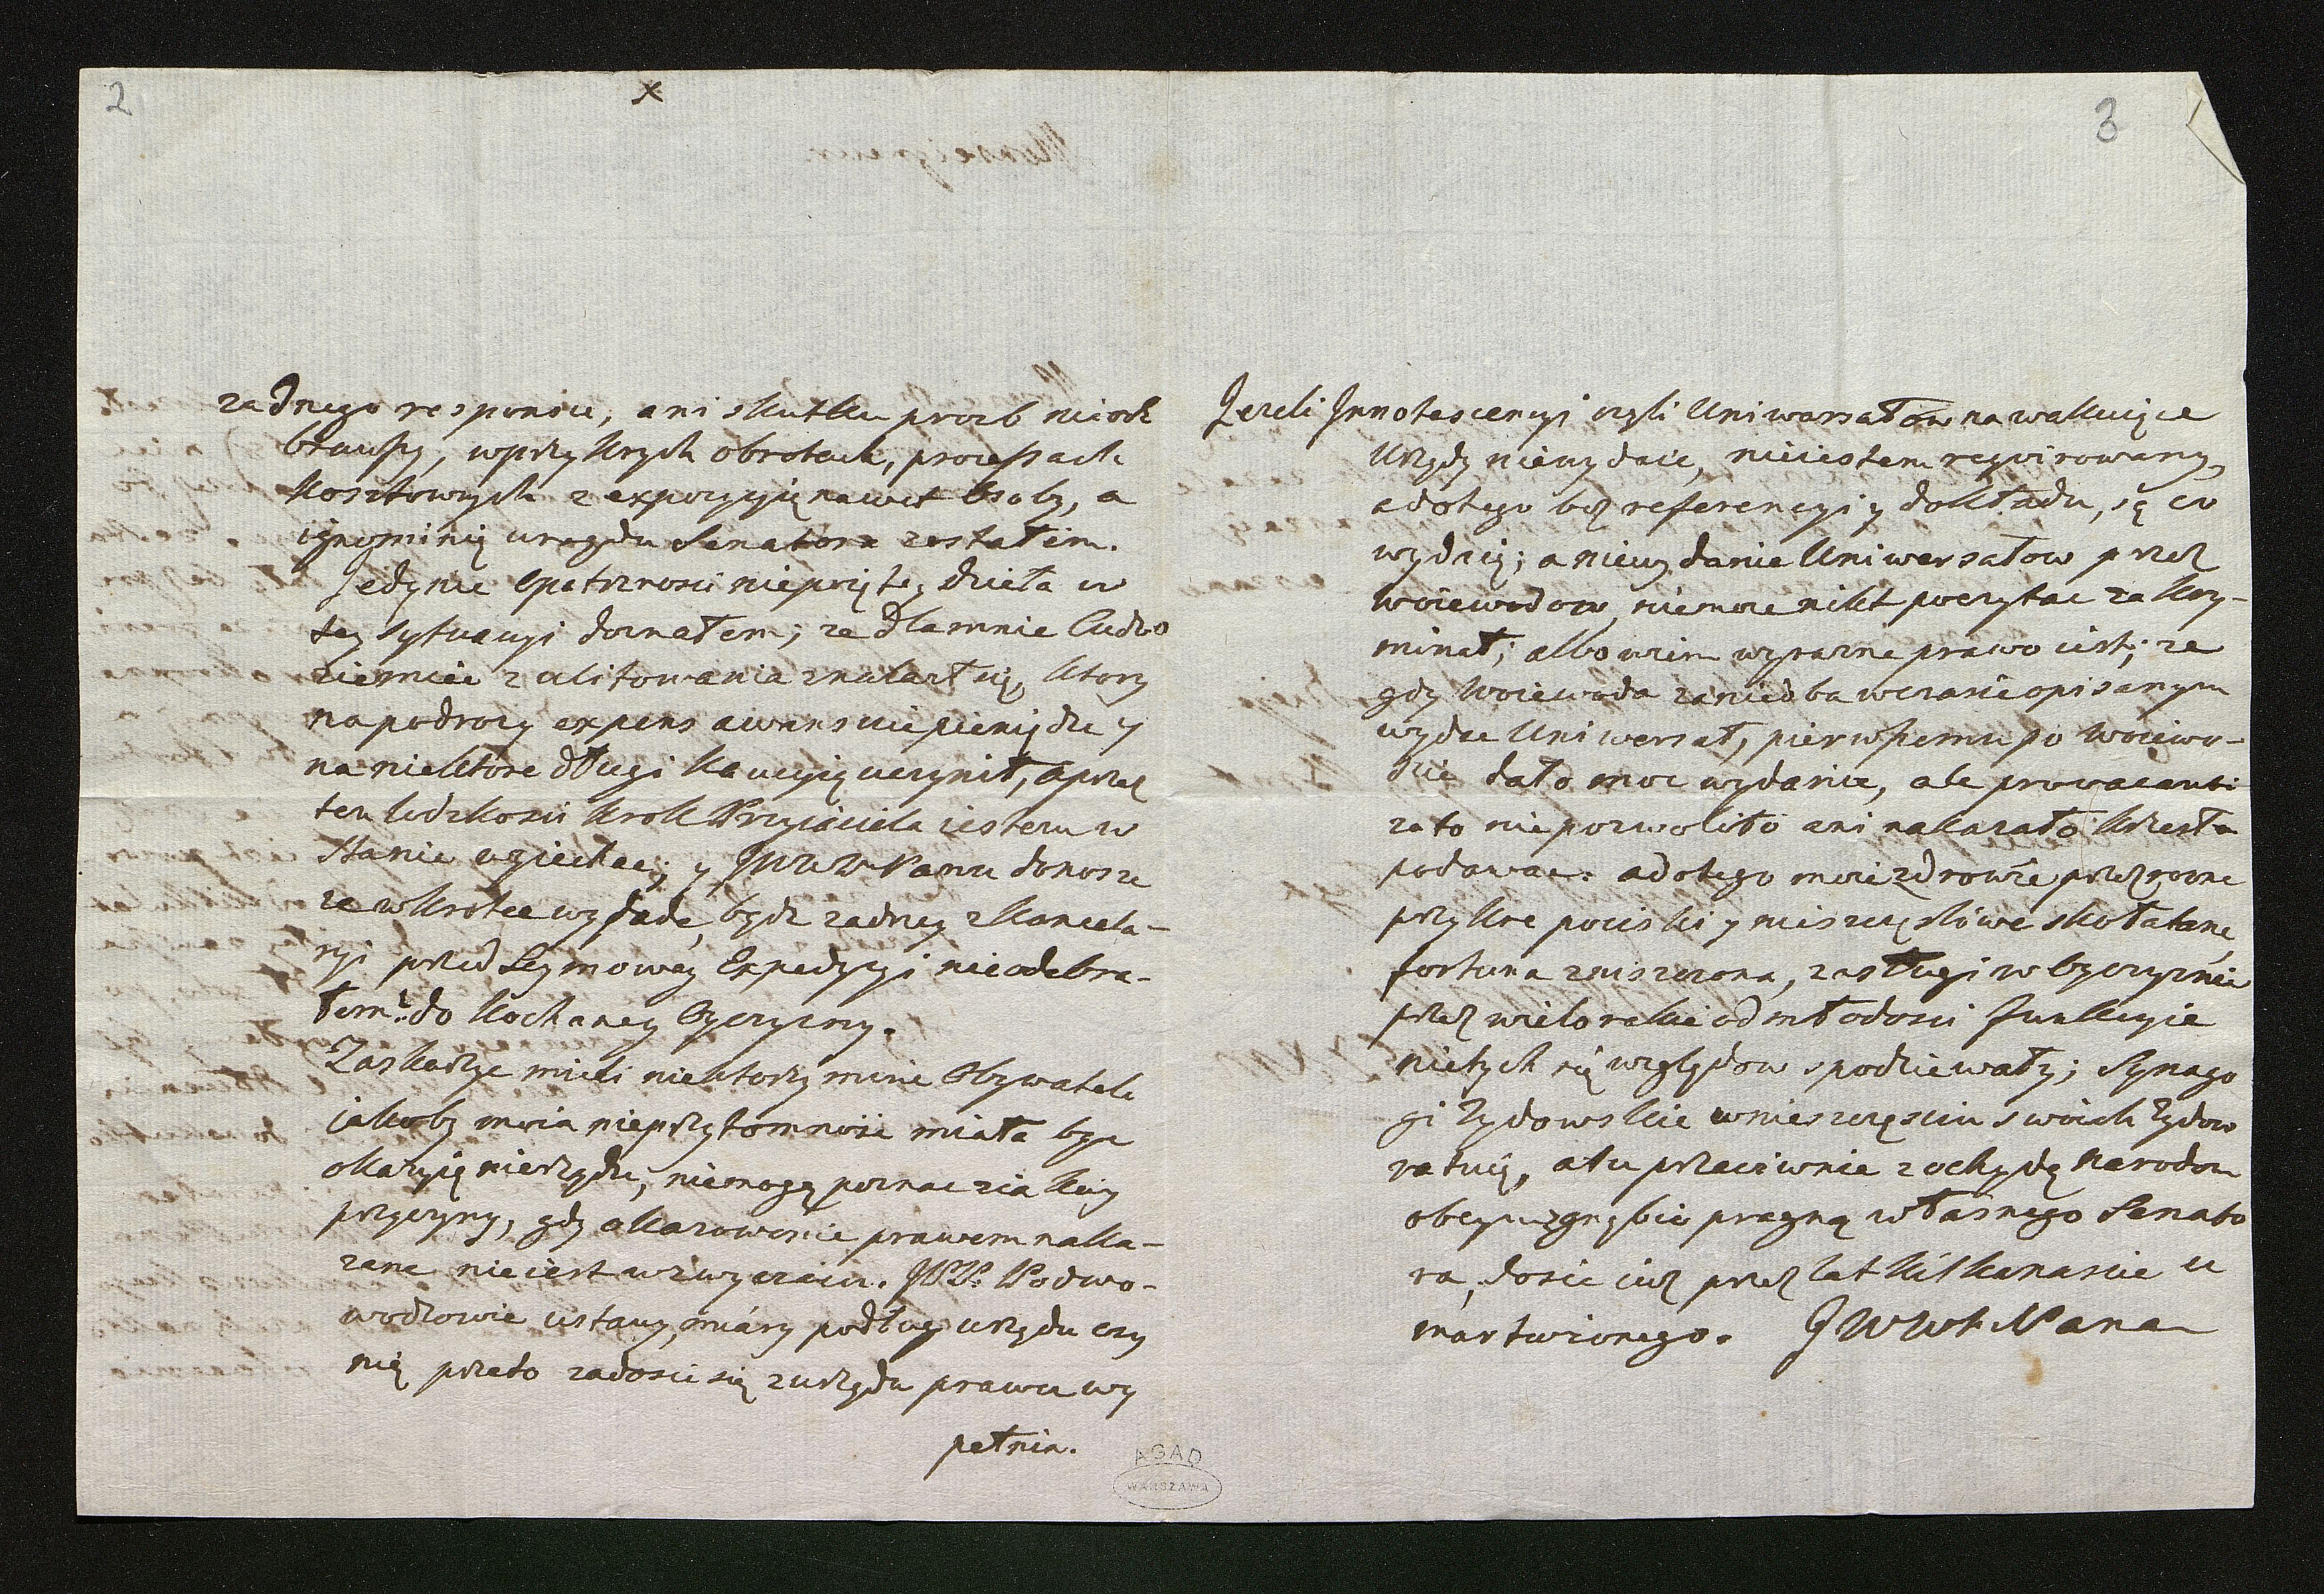 2
x
zadnego responsu, ani skutku prozb nieode
brawszy, w przykrych obrotach, processach
kosztownych z expozycyią nawet Osoby, a
ignominią urzędu Senatora zostałem.
Jedynie Opatrznosci niepoiętey dzieła w
tey sytuacyi doznałem; ze dla mnie Cudzo
ziemiec z ulitowania znalazł się, ktory
na podrozy expens awans uie pieniędze y
na niektore długi kaucyią uczynił, a przez
ten ludzkosci krok Przyiaciela iestem w
stanie wyiechac; y JWW Panu donosze
ze wkrotce wyjade, bydz zadney z Kancela-
ryi przed Seymowey Expedycyi nieodebra-
łem do kochaney Oyczyzny.
Zaskarzyc mieli niektorzy mnie Obywatele
jakoby moia nieprzytomnosc miała byc
okazyią nierządu, niemogę poznac z iakiey
przyczyny, gdy okazowanie prawem naka-
zane nieiest w zwyczaiu. JPP. Podwo-
wodzowie ustawy, miary podług urzędu czy
nią przeto zadosic się z urzędu prawu wy
pełnia.
AGAD
WARSZAWA
3
Jezeli Innotescencyi czyli Uniwersałow na wakuiące
Urzędy niewydaie, nieiestem rekwirowany,
a do tego bez referencyi y dokładu, są co
wydaią; a niewydanie Uniwersałow przez
Woiewodow, niemoze nikt poczytac za kry-
minał; albowiem wyrazne prawo iest; ze
gdy Woiewoda zaniedba w czasie opisanym
wydac Uniwersał, pierwszemu po Woiewo-
dzie dało moc wydania, ale prowacanti
za to nie pozwoliło ani nakazało krzesła
podawac. a do tego moie zdrowie przez rozne
przykre pociski y nieszczęsliwe skołatane,
fortuna zniszczona, zasługi w Oyczyznie
przez wielorakie od młodosci funkcyie
nietych się względow spodziewały; Synago
gi Zydowskie w nieszczęsciu swoich Zydow
ratuią, a tu przeciwnie z ochydą Narodow
obcych zgnębic pragną własnego Senato
ra, dosic iuz przez lat kilkanascie u
martwionego. JWWW Pana